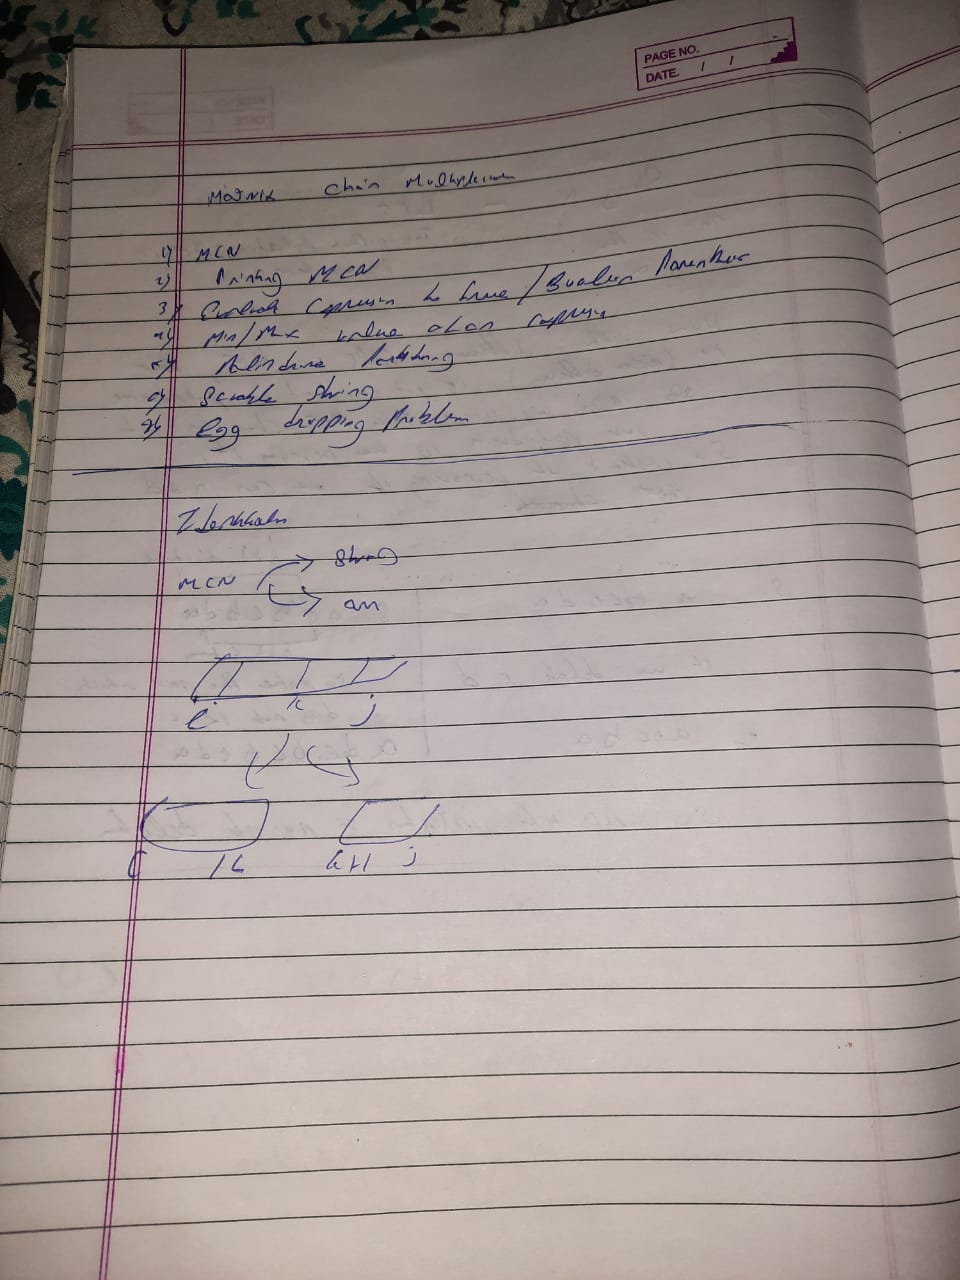 PAGE NO.
DATE. / /
Matrix Chain Multiplication
1) MCM
2) Printing MCM
3) Evaluate Expression to true / Boolean Parenthesis
4) Min/Max value of an Expression
5) Palindrome Partitioning
6) Scramble String
7) Egg dropping Problem
Identification
String
MCM
arr
i k j
i k k+1 j